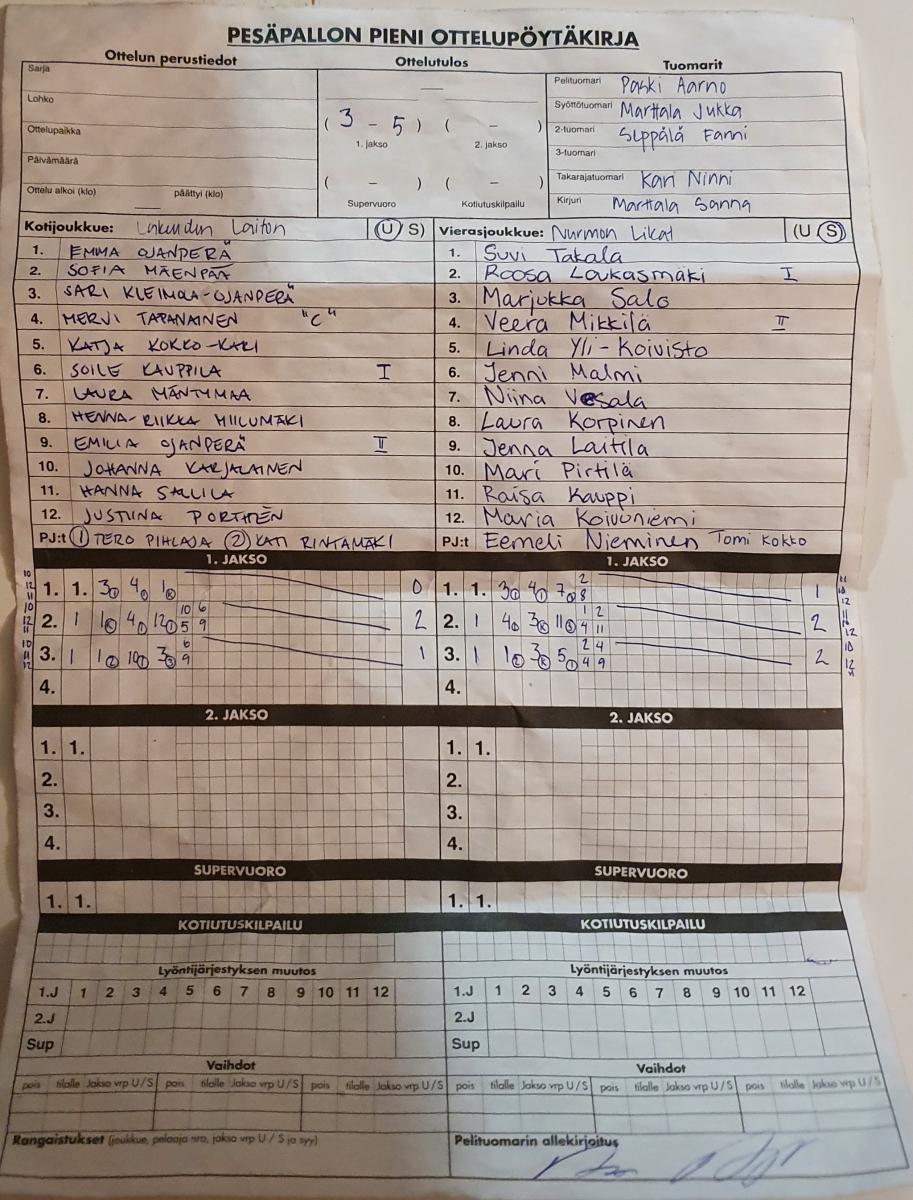 PESÄPALLON PIENI OTTELUPÖYTÄKIRJA
Ottelun perustiedot Ottelutulos Tuomarit
Sarja
Lohko
Ottelupaikka
Päivämäärä
Ottelu alkoi (klo) päättyi (klo)
( 3 - 5 ) ( - )
1. jakso 2. jakso
( - ) ( - )
Supervuoro Kotiutuskilpailu
Pelituomari Paski Aarno
Syöttötuomari Marttala Jukka
2-tuomari Seppälä Fanni
3-tuomari
Takarajatuomari Kari Ninni
Kirjuri Marttala Sanna
Kotijoukkue: Lakeuden Laiton (U S)
1. EMMA OJANPERÄ
2. SOFIA MÄENPÄÄ
3. SARI KLEIMOLA-OJANPERÄ
4. MERVI TAPANAINEN "C"
5. KATJA KOKKO-KARI
6. SOILE KAUPPILA I
7. LAURA MÄNTYMAA
8. HENNA-RIIKKA HIILUMÄKI
9. EMILIA OJANPERÄ II
10. JOHANNA KARJALAINEN
11. HANNA SALLILA
12. JUSTIINA PORTTÉN
PJ:t 1 TERO PIHLAJA 2 KATI RINTAMÄKI
Vierasjoukkue: Nurmon Likat (U S)
1. Suvi Takala
2. Roosa Loukasmäki I
3. Marjukka Salo
4. Veera Mikkilä II
5. Linda Yli-Koivisto
6. Jenni Malmi
7. Niina Vesala
8. Laura Korpinen
9. Jenna Laitila
10. Mari Pirtilä
11. Raisa Kauppi
12. Maria Koivuniemi
PJ:t Eemeli Nieminen Tomi Kokko
1. JAKSO 1. JAKSO
1. 1. 3 4 1 0
2. 1 1 4 12 10 6 5 9 2
3. 1 1 10 3 6 9 1
4.
1. 1. 3 4 7 2 8 1
2. 1 4 3 11 1 2 4 11 2
3. 1 1 3 5 2 4 4 9 2
4.
2. JAKSO 2. JAKSO
1. 1. 1. 1.
2. 2.
3. 3.
4. 4.
SUPERVUORO SUPERVUORO
1. 1. 1. 1.
KOTIUTUSKILPAILU KOTIUTUSKILPAILU
Lyöntijärjestyksen muutos Lyöntijärjestyksen muutos
1.J 1 2 3 4 5 6 7 8 9 10 11 12 1.J 1 2 3 4 5 6 7 8 9 10 11 12
2.J 2.J
Sup Sup
Vaihdot Vaihdot
pois tilalle Jakso vrp U/S pois tilalle Jakso vrp U/S pois tilalle Jakso vrp U/S pois tilalle Jakso vrp U/S pois tilalle Jakso vrp U/S pois tilalle Jakso vrp U/S
Rangaistukset (joukkue, pelaaja nro, jakso vrp U / S ja syy) Pelituomarin allekirjoitus